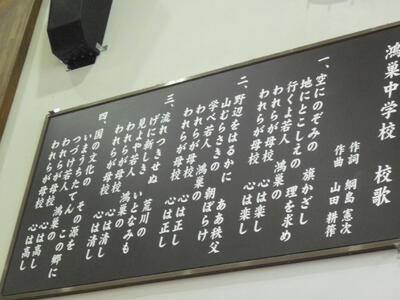 鴻巣中学校 校歌
作詞 綱島憲次
作曲 山田耕筰
一、空にのぞみの 旗かざし
地にとこしえの 理を求め
行くよ若人 鴻巣の
われらが母校 心は楽し
われらが母校 心は楽し
二、野辺をはるかに ああ秩父
山むらさきの 朝ぼらけ
学べ若人 鴻巣の
われらが母校 心は正し
われらが母校 心は正し
三、流れつきせぬ 荒川の
げに新しき いとなみも
見よや若人 鴻巣の
われらが母校 心は清し
われらが母校 心は清し
四、国の文化の その源を
いまうちたてん この郷に
つづけ若人 鴻巣の
われらが母校 心は高し
われらが母校 心は高し